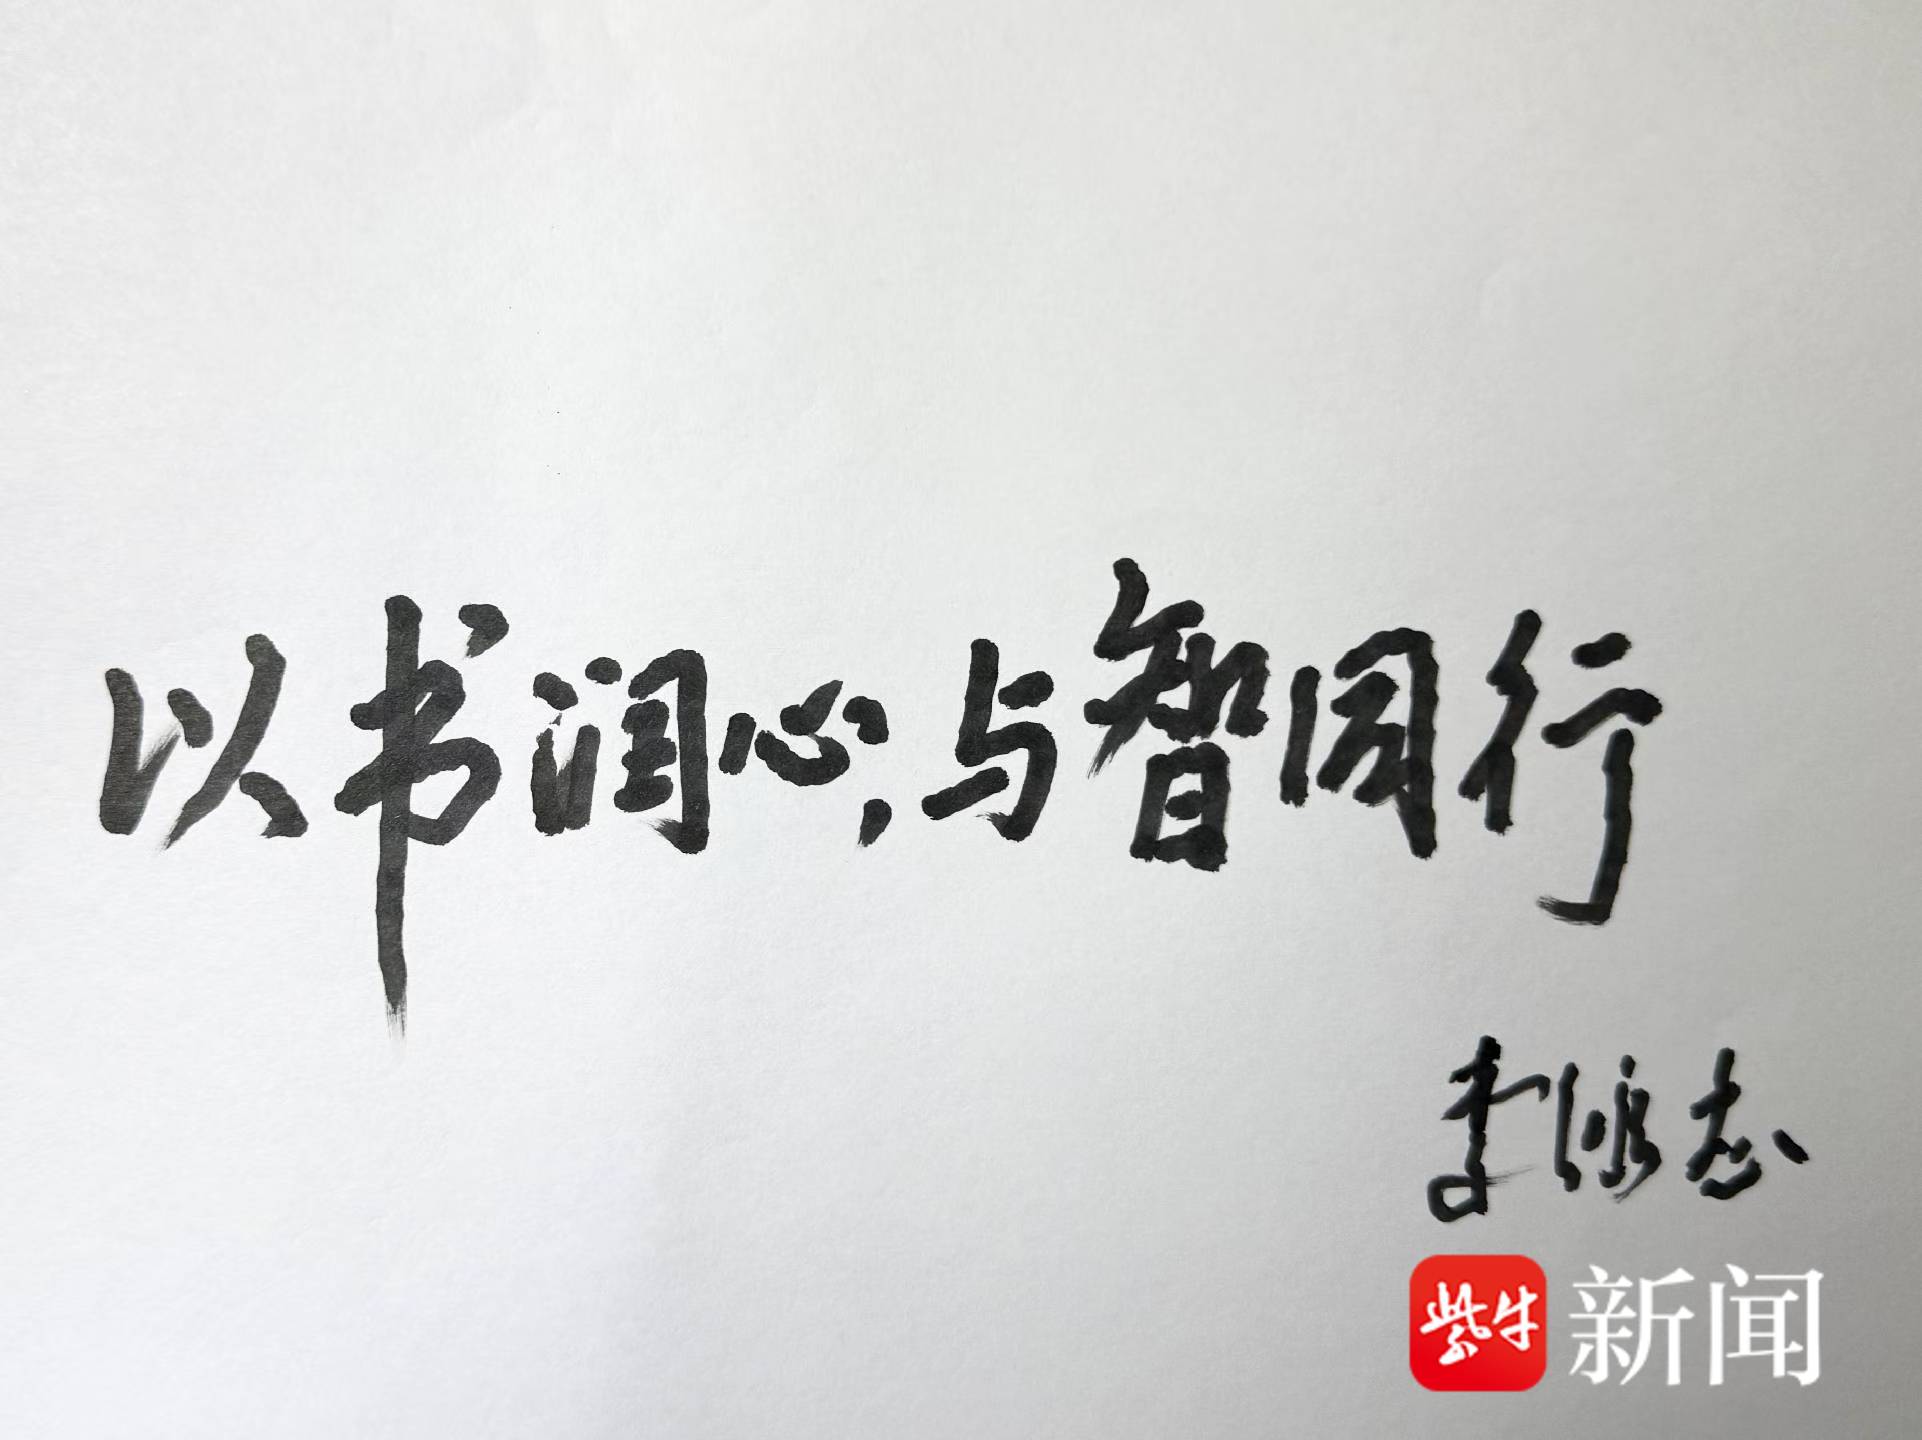 以书润心,与智同行
李
志
紫牛 新闻